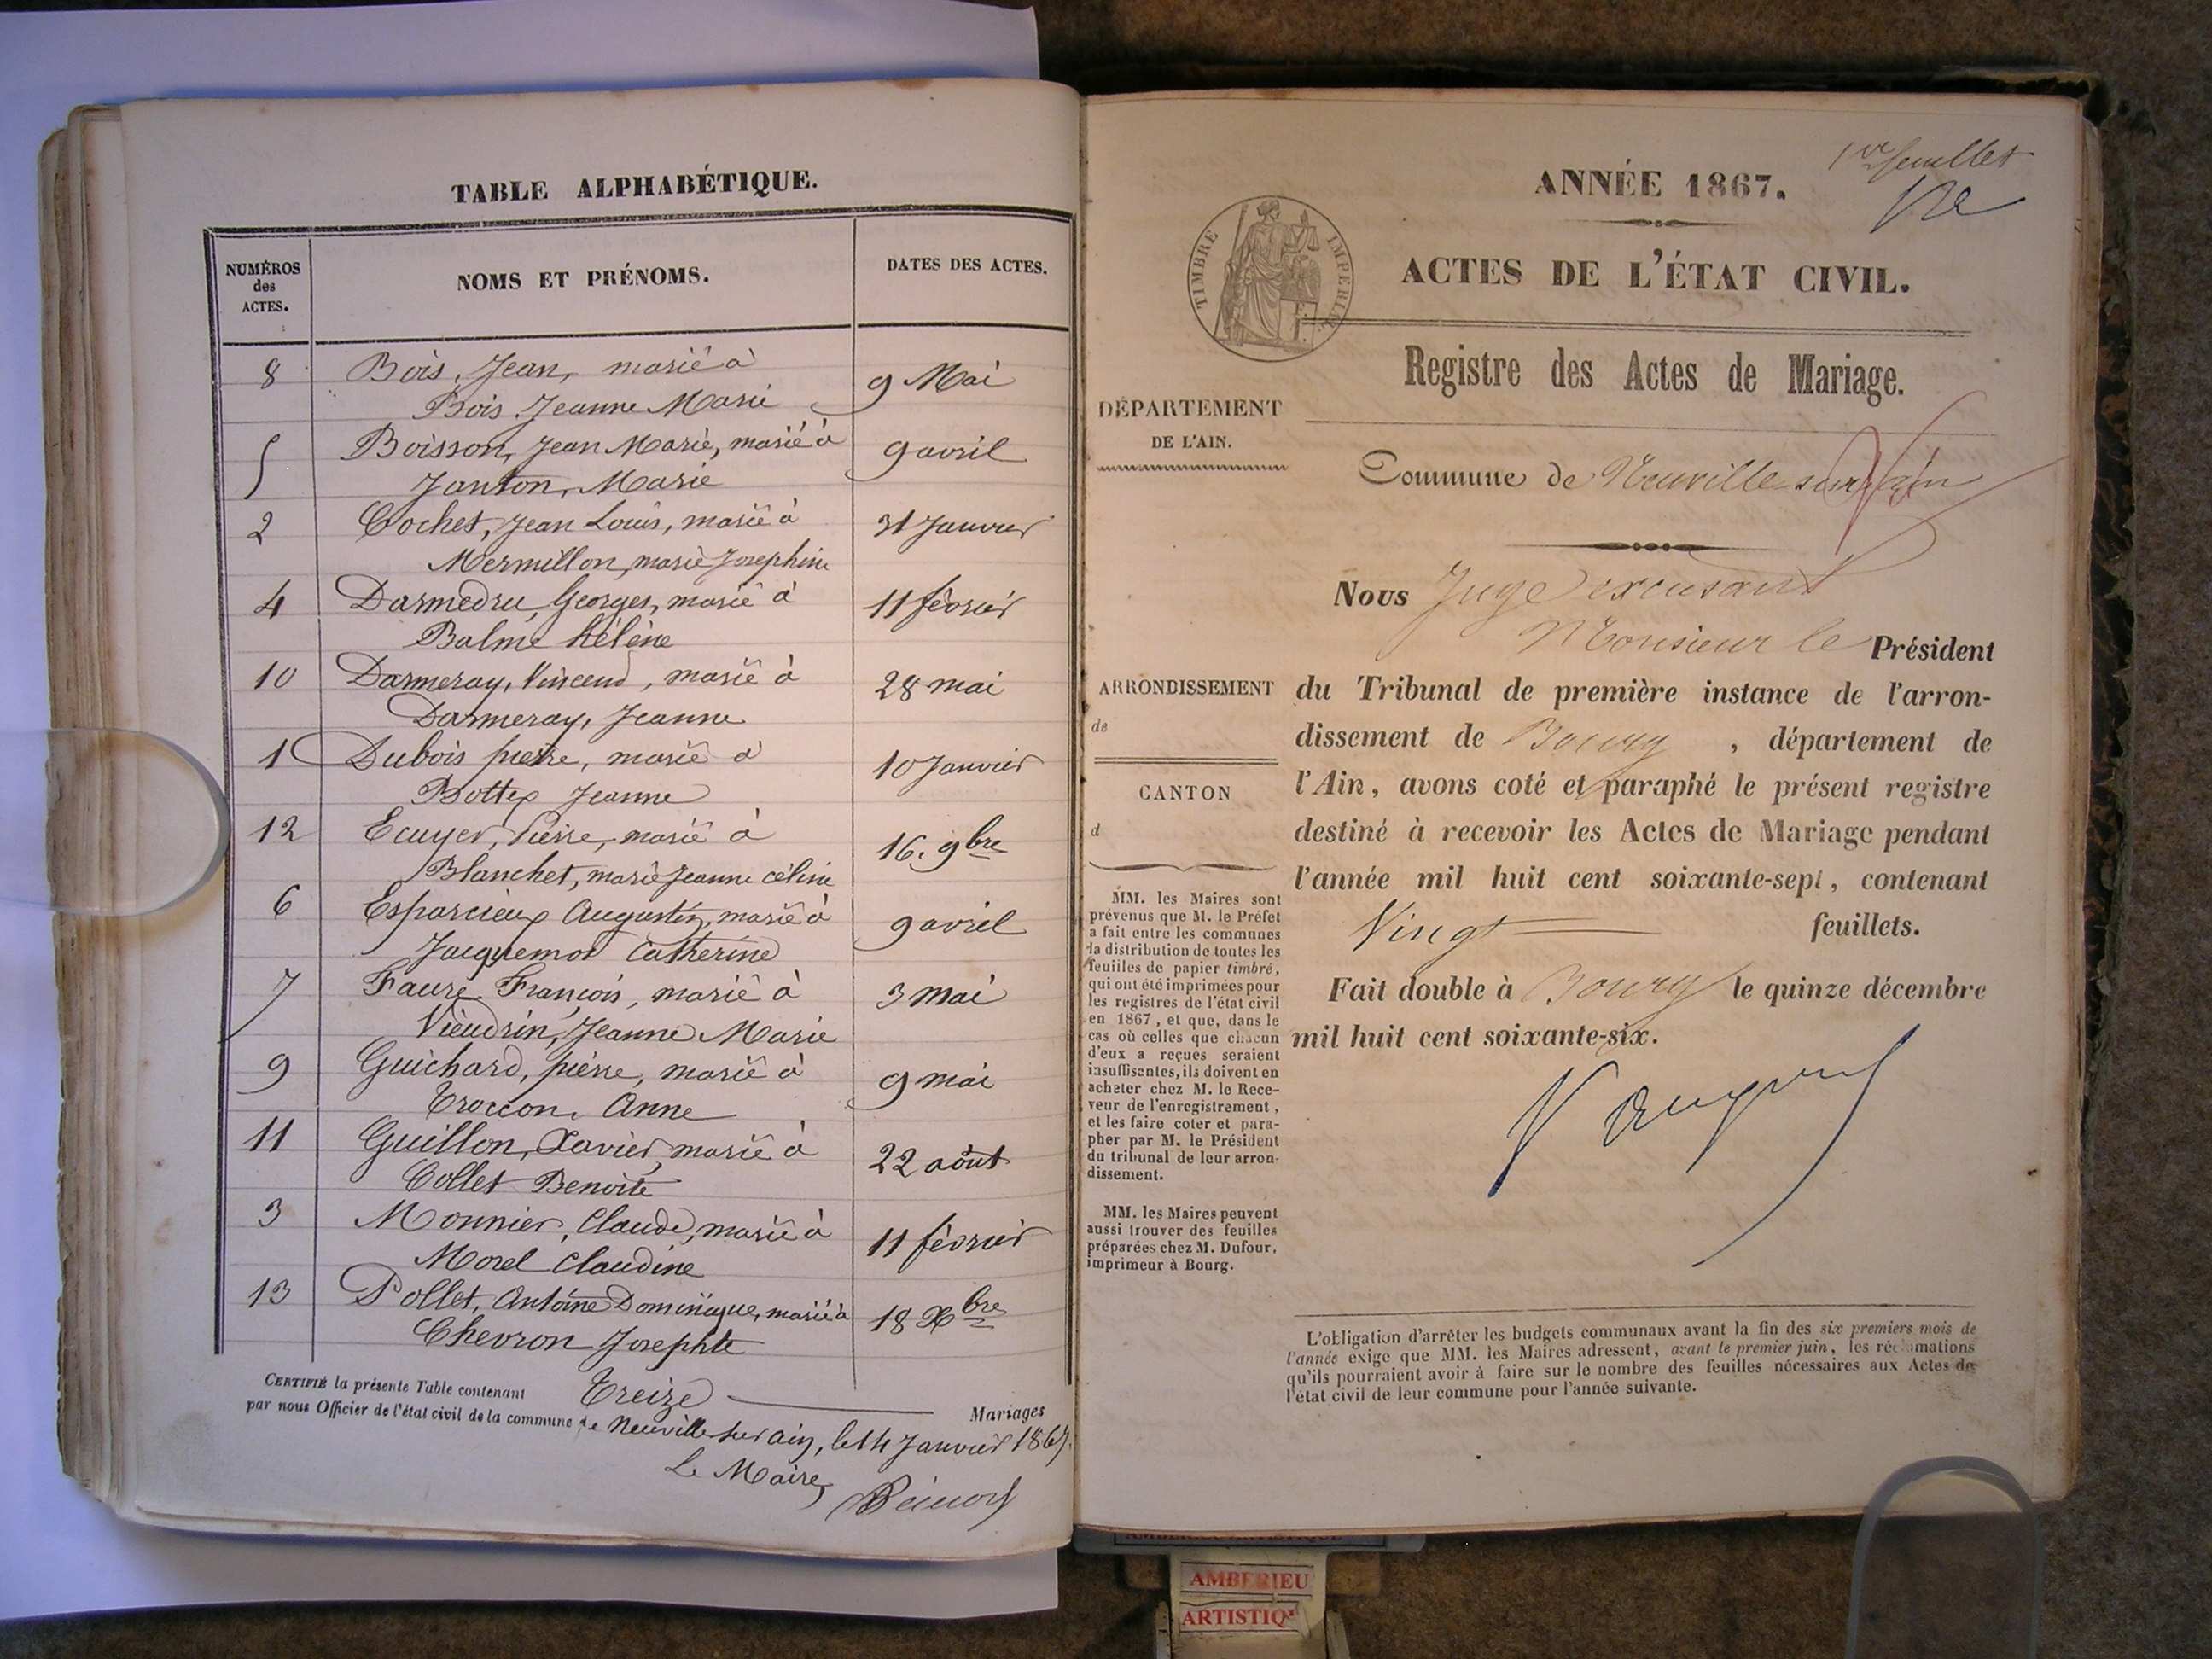 TABLE ALPHABÉTIQUE.
NUMÉROS
des
ACTES.
NOMS ET PRÉNOMS.
DATES DES ACTES.
8 Bois, Jean, marié à
Bois Jeanne Marie
9 Mai
5 Boisson, Jean Marie, marié à
Janton, Marie
9 avril
2 Cochet, Jean Louis, marié à
Mermillon, marie Josephine
31 Janvier
4 Darmedru, Georges, marié à
Balme hélène
11 février
10 Darmeray, Vincend, marié à
Darmeray, Jeanne
28 mai
1 Dubois pierre, marié à
Bottex Jeanne
10 Janvier
12 Ecuyer, Pierre, marié à
Blanchet, marie Jeanne céline
16. 9bre
6 Esparcieux Augustin, marié à
Jacquemot Catherine
9 avril
7 Faure François, marié à
Vieudrin, Jeanne Marie
3 mai
9 Guichard, pierre, marié à
Troccon, Anne
9 mai
11 Guillon, Xavier, marié à
Collet Benoite
22 août
3 Monnier, Claude, marié à
Morel Claudine
11 février
13 Pollet, Antoine Dominique, marié à
Chevron Josephte
18 Xbre
CERTIFIÉ la présente Table contenant Treize Mariages
par nous Officier de l'état civil de la commune de Neuville sur ain, le 14 Janvier 1867.
Le Maire,
1er feuillet
ANNÉE 1867.
TIMBRE IMPÉRIAL
ACTES DE L'ÉTAT CIVIL.
Registre des Actes de Mariage.
DÉPARTEMENT
DE L'AIN.
Commune de Neuville sur Ain
Nous Juge excusant
Monsieur le Président
ARRONDISSEMENT
de
CANTON
d
du Tribunal de première instance de l'arron-
dissement de Bourg , département de
l'Ain, avons coté et paraphé le présent registre
destiné à recevoir les Actes de Mariage pendant
l'année mil huit cent soixante-sept, contenant
Vingt feuillets.
Fait double à Bourg le quinze décembre
mil huit cent soixante-six.
MM. les Maires sont
prévenus que M. le Préfet
a fait entre les communes
la distribution de toutes les
feuilles de papier timbré,
qui ont été imprimées pour
les registres de l'état civil
en 1867, et que, dans le
cas où celles que chacun
d'eux a reçues seraient
insuffisantes, ils doivent en
acheter chez M. le Rece-
veur de l'enregistrement,
et les faire coter et para-
pher par M. le Président
du tribunal de leur arron-
dissement.
MM. les Maires peuvent
aussi trouver des feuilles
préparées chez M. Dufour,
imprimeur à Bourg.
L'obligation d'arrêter les budgets communaux avant la fin des six premiers mois de
l'année exige que MM. les Maires adressent, avant le premier juin, les réclamations
qu'ils pourraient avoir à faire sur le nombre des feuilles nécessaires aux Actes de
l'état civil de leur commune pour l'année suivante.
AMBERIEU
ARTISTIQ